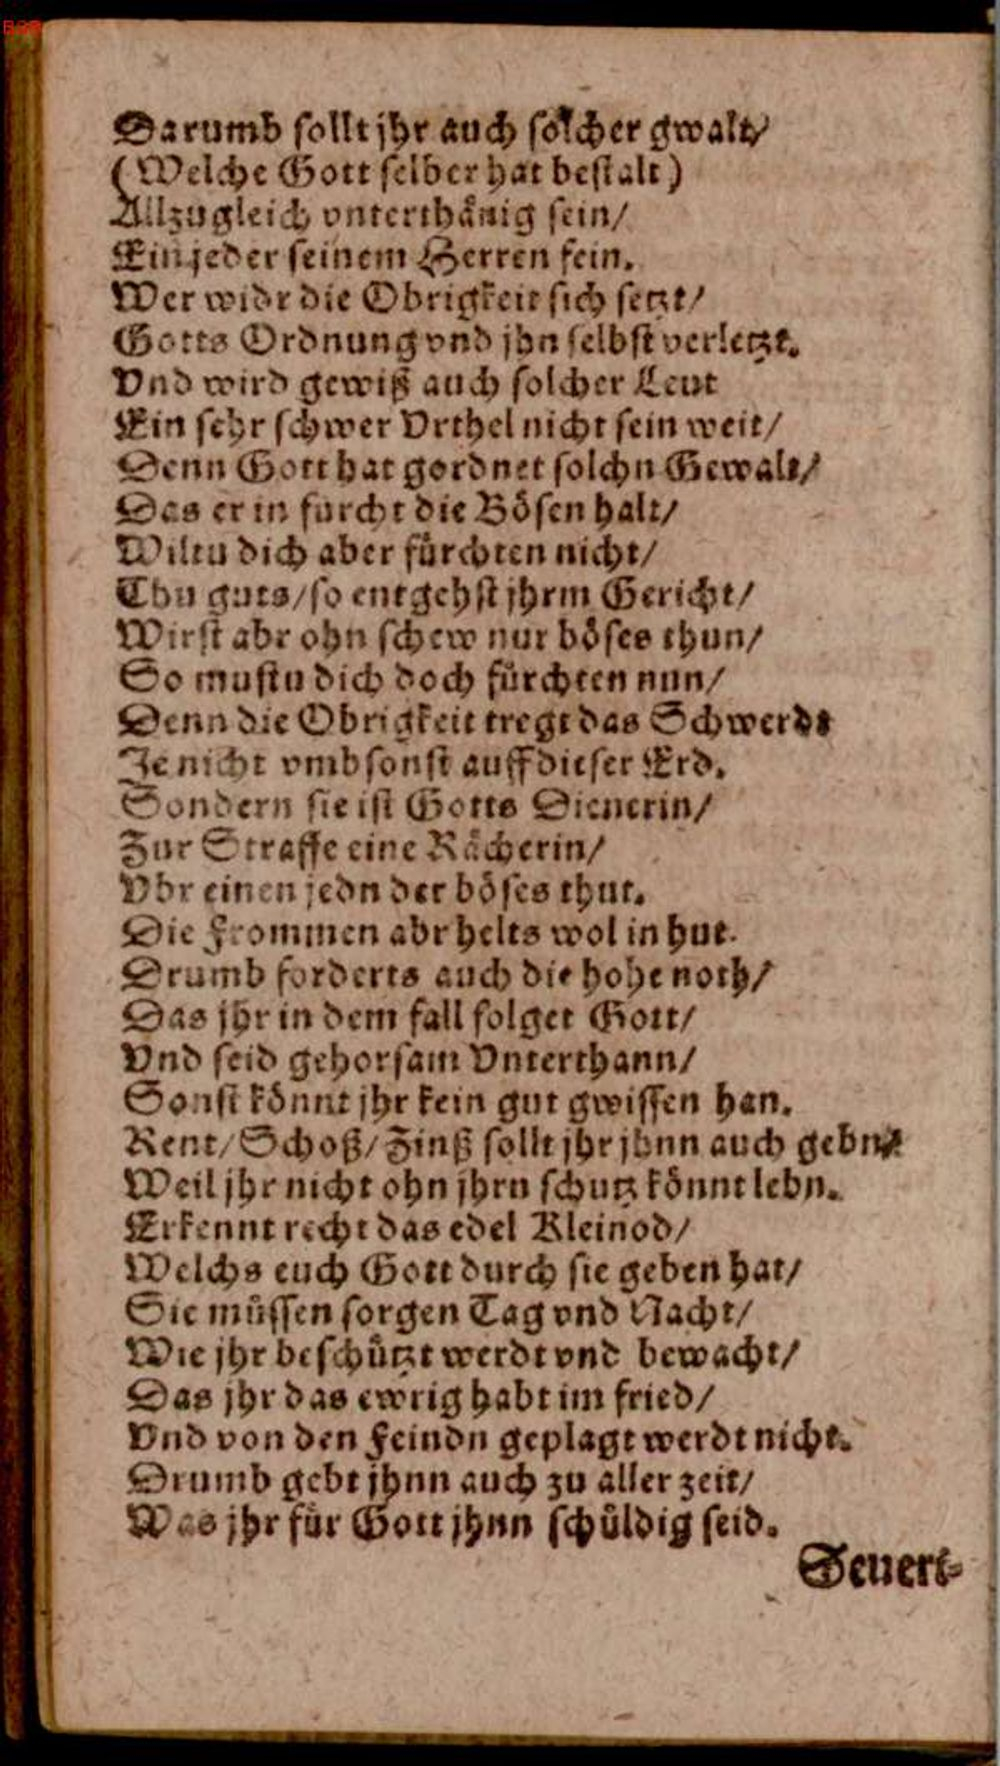 Darumb sollt jhr auch solcher gwalt/
(Welche Gott selber hat bestalt)
Allzugleich vnterthånig sein/
Ein jeder seinem Herren fein.
Wer widr die Obrigkeit sich setzt/
Gotts Ordnung vnd jhn selbst verletzt.
Vnd wird gewiß auch solcher Leut
Ein sehr schwer Vrthel nicht sein weit/
Denn Gott hat gordnet solchn Gewalt/
Das er in furcht die Bösen halt/
Wiltu dich aber fürchten nicht/
Thu guts/so entgehst jhrm Gericht/
Wirst abr ohn schew nur böses thun/
So mustu dich doch fürchten nun/
Denn die Obrigkeit tregt das Schwerdt
Je nicht vmbsonst auff dieser Erd.
Sondern sie ist Gotts Dienerin/
Zur Straffe eine Rächerin/
Vbr einen jedn der böses thut.
Die Frommen abr helts wol in hut.
Drumb forderts auch die hohe noth/
Das jhr in dem fall folget Gott/
Vnd seid gehorsam Vnterthann/
Sonst könnt jhr kein gut gwissen han.
Rent/Schoß/Zinß sollt jhr jhnn auch gebn/
Weil jhr nicht ohn jhrn schutz könnt lebn.
Erkennt recht das edel Kleinod/
Welchs euch Gott durch sie geben hat/
Sie müssen sorgen Tag vnd Nacht/
Wie jhr beschützt werdt vnd bewacht/
Das jhr das ewrig habt im fried/
Vnd von den Feindn geplagt werdt nicht.
Drumb gebt jhnn auch zu aller zeit/
Was jhr für Gott jhnn schüldig seid.